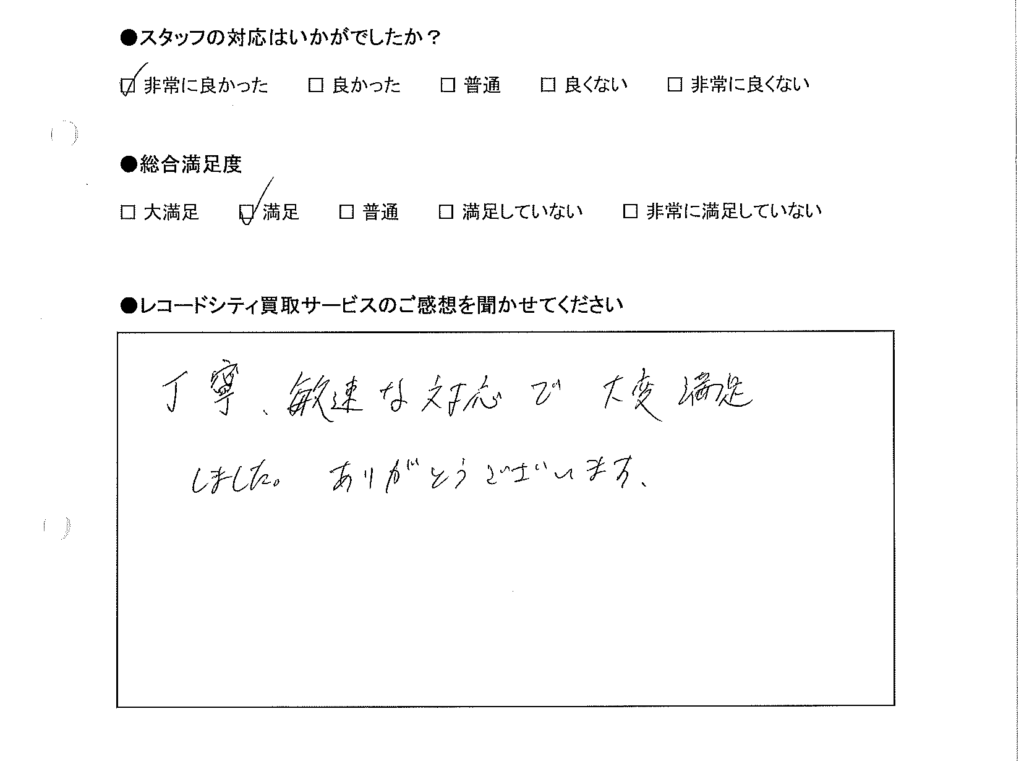 ●スタッフの対応はいかがでしたか？
☑ 非常に良かった □ 良かった □ 普通 □ 良くない □ 非常に良くない
●総合満足度
□ 大満足 ☑ 満足 □ 普通 □ 満足していない □ 非常に満足していない
●レコードシティ買取サービスのご感想を聞かせてください
丁寧、敏速な対応で 大変満足
しました。ありがとうございます、